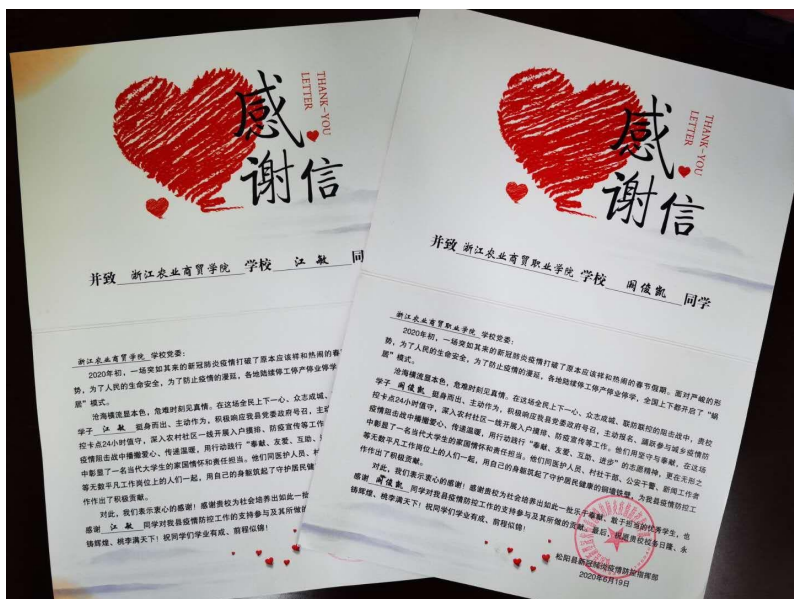 感谢信
THANK-YOU
LETTER
并致 浙江农业商贸学院 学校 江敏 同
浙江农业商贸学院 学校党委：
2020年初，一场突如其来的新冠肺炎疫情打破了原本应该祥和热闹的春节
势，为了人民的生命安全，为了防止疫情的蔓延，各地陆续停工停产停业停学
居”模式。
沧海横流显本色，危难时刻见真情。在这场全民上下一心、众志成城、
学子 江敏 挺身而出、主动作为，积极响应我县党委政府号召，主动
控卡点24小时值守，深入农村社区一线开展入户摸排、防疫宣传等工作
疫情阻击战中播撒爱心、传递温暖，用行动践行“奉献、友爱、互助、
中彰显了一名当代大学生的家国情怀和责任担当。他们同医护人员、村
等无数平凡工作岗位上的人们一起，用自己的身躯筑起了守护居民健
作作出了积极贡献。
对此，我们表示衷心的感谢！感谢贵校为社会培养出如此一批
感谢 江敏 同学对我县疫情防控工作的支持参与及其所做的
铸辉煌、桃李满天下！祝同学们学业有成、前程似锦！
感谢信
THANK-YOU
LETTER
并致 浙江农业商贸职业学院 学校 阎俊凯 同学
浙江农业商贸职业学院 学校党委：
2020年初，一场突如其来的新冠肺炎疫情打破了原本应该祥和热闹的春节假期。面对严峻的形
势，为了人民的生命安全，为了防止疫情的蔓延，各地陆续停工停产停业停学，全国上下都开启了“蜗
居”模式。
沧海横流显本色，危难时刻见真情。在这场全民上下一心、众志成城、联防联控的阻击战中，贵校
学子 阎俊凯 挺身而出、主动作为，积极响应我县党委政府号召，主动报名、踊跃参与城乡疫情防
控卡点24小时值守，深入农村社区一线开展入户摸排、防疫宣传等工作。他们用坚守与奉献，在这场
疫情阻击战中播撒爱心、传递温暖，用行动践行“奉献、友爱、互助、进步”的志愿精神，更在无形之
中彰显了一名当代大学生的家国情怀和责任担当。他们同医护人员、村社干部、公安干警、新闻工作者
等无数平凡工作岗位上的人们一起，用自己的身躯筑起了守护居民健康的铜墙铁壁，为我县疫情防控工
作作出了积极贡献。
对此，我们表示衷心的感谢！感谢贵校为社会培养出如此一批乐于奉献、敢于担当的优秀学生，也
感谢 阎俊凯 同学对我县疫情防控工作的支持参与及其所做的贡献。最后，祝愿贵校校务日隆、永
铸辉煌、桃李满天下！祝同学们学业有成、前程似锦！
松阳县新冠肺炎疫情防控指挥部
2020年6月19日